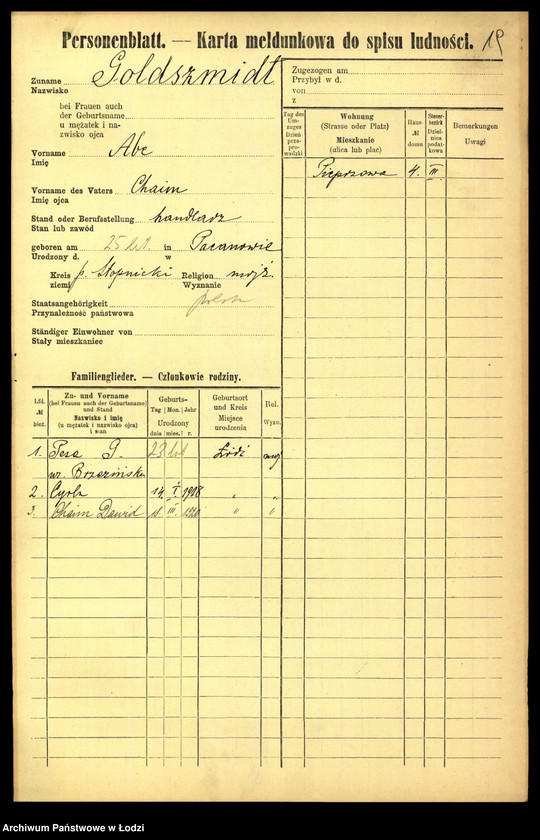 Personenblatt. — Karta meldunkowa do spisu ludności. 19
Zuname Goldszmidt
Nazwisko
bei Frauen auch
der Geburtsname
u mężatek i na-
zwisko ojca
Vorname Abe
Imię
Vorname des Vaters Chaim
Imię ojca
Stand oder Berufsstellung handlarz
Stan lub zawód
geboren am 25 lat. in Pacanowie
Urodzony d. w
Kreis p. Stopnicki Religion mojż.
ziemi Wyznanie
Staatsangehörigkeit polsk
Przynależność państwowa
Ständiger Einwohner von
Stały mieszkaniec
Zugezogen am
Przybył w d.
von
z
Tag des Um-zuges Dzień przepro-wadzki
Wohnung (Strasse oder Platz) Mieszkanie (ulica lub plac)
Haus-№ domu
Steuer-bezirk Dzielnica podat-kowa
Bemerkungen Uwagi
Pieprzowa 4. III
Familienglieder. — Członkowie rodziny.
Lfd. № bież.
Zu- und Vorname (bei Frauen auch der Geburtsname) und Stand Nazwisko i imię (u mężatek i nazwisko ojca) i stan
Geburts- Tag Mon. Jahr Urodzony dnia mies. r.
Geburtsort und Kreis Miejsce urodzenia
Rel. Wyzn.
1. Pesa G. 23 lat Łódź moj
ur. Brzezińska
2. Cyrla 14 I 1918 " "
3. Chaim Dawid 18 III 1920 " "
Archiwum Państwowe w Łodzi